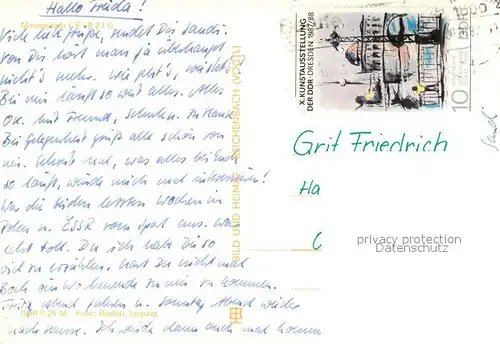 Hallo Frida!
Viele liebe Grüße, sendet Dir Sandi.
Von Dir hört man ja überhaupt
nichts mehr. Wie geht's,
Bei mir läuft so weit alles. Alles
OK. mit Freund, Schule u. zu Hause.
Bei Gelegenheit grüß alle schön von
mir. Schreib mal, was alles bei Euch
so läuft, würde mich mal interessieren!
War die beiden letzten Wochen in
Polen u. ČSSR vom aus. War
echt toll. Du ich habe Dir so
viel zu erzählen. Hast Du nicht mal
Bock ein Wochenende zu mir zu kommen.
Freitag abend u. Sonntag Abend wieder
nach Hause. Ich würde dann auch mal kommen
DDR 0,25 M Foto:
BILD UND HEIMAT REICHENBACH (VOGTL)
X. KUNSTAUSSTELLUNG
DER DDR · DRESDEN 1987/88
10
Grit Friedrich
Ha
C
privacy protection
Datenschutz